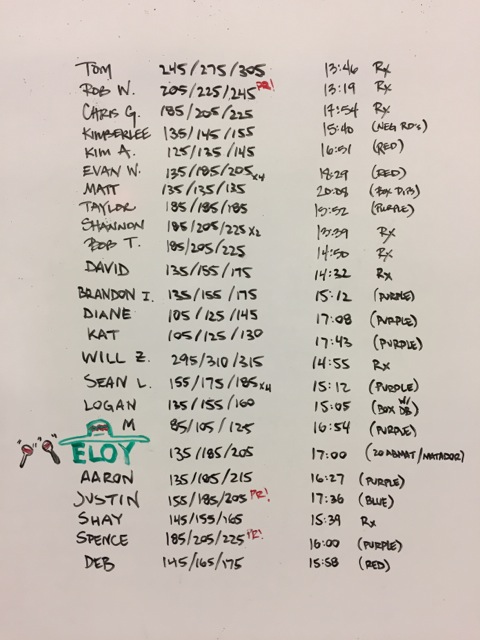 TOM 245/275/305 13:46 Rx
ROB W. 205/225/245 PR! 13:19 Rx
CHRIS G. 185/205/225 17:54 Rx
KIMBERLEE 135/145/155 15:40 (NEG RD's)
KIM A. 125/135/145 16:51 (RED)
EVAN W. 135/185/205 x4 18:29 (RED)
MATT 135/135/135 20:08 (BOX DIPS)
TAYLOR 185/185/185 13:52 (PURPLE)
SHANNON 185/205/225 x2 13:39 Rx
ROB T. 185/205/225 14:50 Rx
DAVID 135/155/175 14:32 Rx
BRANDON I. 135/155/175 15:12 (PURPLE)
DIANE 105/125/145 17:08 (PURPLE)
KAT 105/125/130 17:43 (PURPLE)
WILL Z. 295/310/315 14:55 Rx
SEAN L. 155/175/185 x4 15:12 (PURPLE)
LOGAN 135/155/160 15:05 (BOX W/ DB)
M 85/105/125 16:54 (PURPLE)
ELOY 135/185/205 17:00 (20 ABMAT/MATADOR)
AARON 135/185/215 16:27 (PURPLE)
JUSTIN 155/185/205 PR! 17:36 (BLUE)
SHAY 145/155/165 15:39 Rx
SPENCE 185/205/225 PR! 16:00 (PURPLE)
DEB 145/165/175 15:58 (RED)